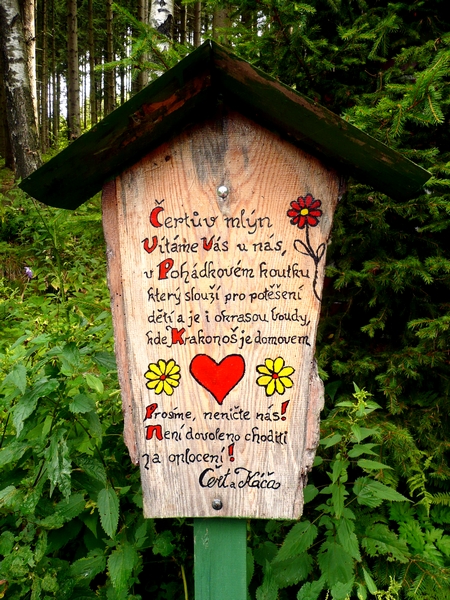 Čertův mlýn
Vítáme Vás u nás,
v Pohádkovém koutku
který slouží pro potěšení
dětí a je i okrasou boudy,
kde Krakonoš je domovem
Prosme, neničte nás!
Není dovoleno choditi
za oplocení!
Čert a Káča